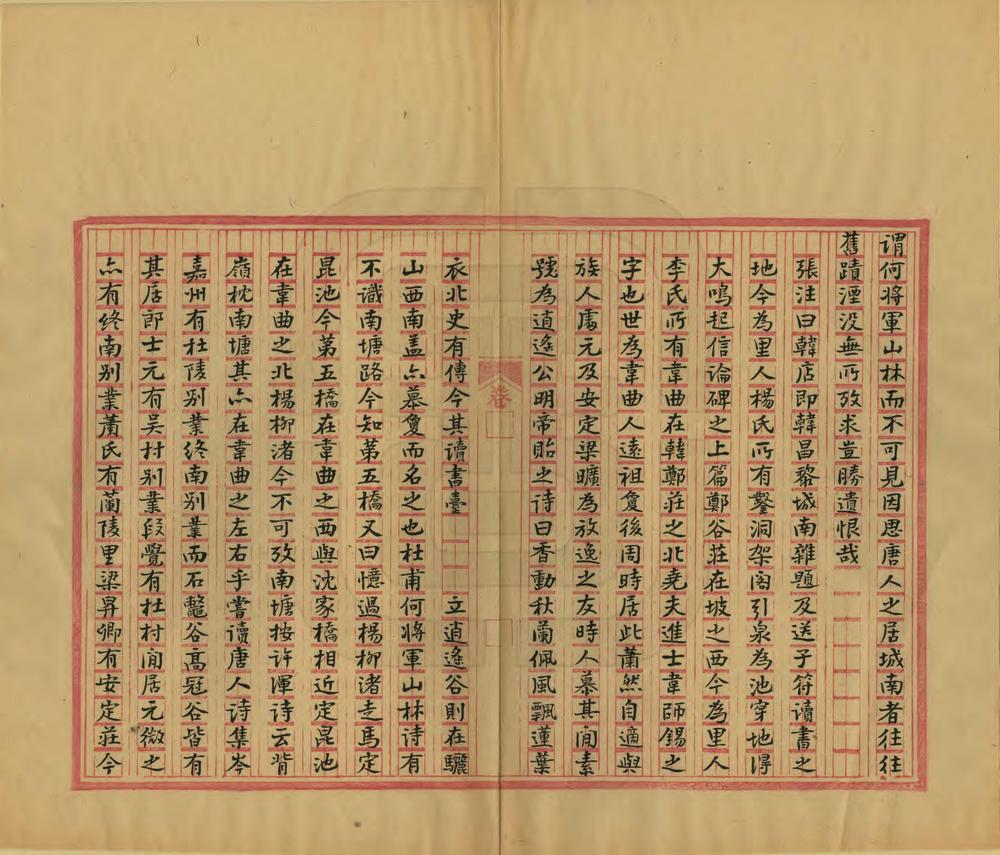 謂何将軍山林而不可見因思唐人之居城南者往往
舊蹟湮没無所攷求豈勝遺恨哉
張注曰韓店即韓昌黎城南雜題及送子符讀書之
地今為里人楊氏所有鑿洞架阁引泉為池穿地得
大鳴起信論碑之上篇鄭谷莊在坡之西今為里人
李氏所有韋曲在韓鄭莊之北堯夫進士韋師錫之
字也世為韋曲人遠祖夐後周時居此蕭然自適與
族人處元及安定梁曠為放逸之友時人慕其閒素
號為逍遙公明帝貽之诗曰香動秋蘭佩風飄蓮葉
卷
衣北史有傳今其读書臺 立逍遙谷則在驪
山西南盖亦慕夐而名之也杜甫何将軍山林诗有
不識南塘路今知第五橋又曰憶過楊柳渚走馬定
昆池今第五橋在韋曲之西與沈家橋相近定昆池
在韋曲之北楊柳渚今不可攷南塘按许渾诗云背
嶺枕南塘其亦在韋曲之左右乎嘗读唐人诗集岑
嘉州有杜陵别業终南别業而石鼈谷高冠谷皆有
其居郎士元有吴村别業段覺有杜村闲居元微之
亦有终南别業萧氏有蘭陵里梁昇卿有安定莊今